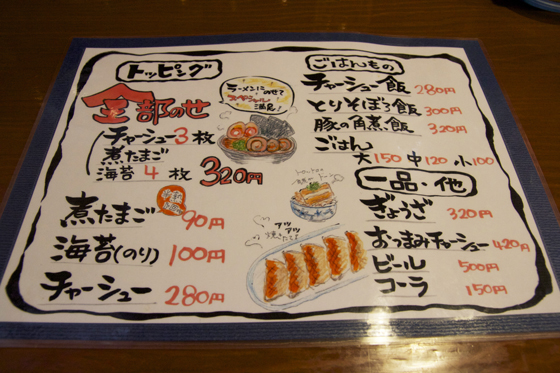 トッピング
全部のせ
チャーシュー3枚
煮たまご
海苔4枚 320円
煮たまご 90円
海苔(のり) 100円
チャーシュー 280円
ラーメンにのせて
満足!
ごはんもの
チャーシュー飯 280円
とりそぼろ飯 300円
豚の角煮飯 320円
ごはん
大150 中120 小100
一品・他
ぎょうざ 320円
おつまみチャーシュー 420円
ビール 500円
コーラ 150円
アツ
アツ
焼たてよ